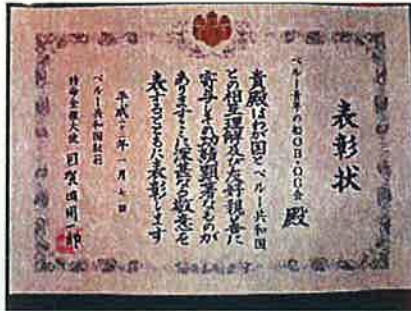 表彰状
ペルー青年の船OB・OG会 殿
貴殿はわが国とペルー共和国
との相互理解及び友好親善に
寄与しその功績顕著なものが
ありますここに深甚なる敬意を
表するとともに表彰します
平成十一年一月七日
ペルー共和国駐箚
特命全権大使